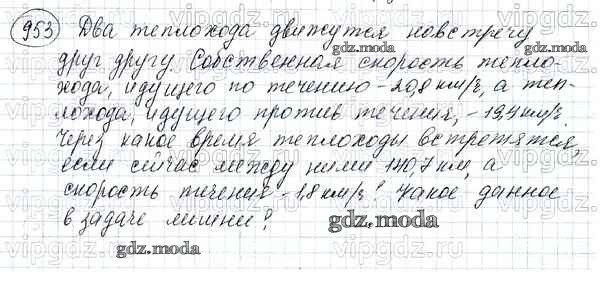 953 Два теплохода движутся навстречу
друг другу. Собственная скорость тепло-
хода, идущего по течению - 20,8 км/ч, а теп-
лохода, идущего против течения, - 19,4 км/ч.
Через какое время теплоходы встретятся,
если сейчас между ними 140,7 км, а
скорость течения - 1,8 км/ч? Какое данное
в задаче лишнее?
gdz.moda
gdz.moda
gdz.moda
gdz.moda
gdz.moda
gdz.moda
gdz.moda